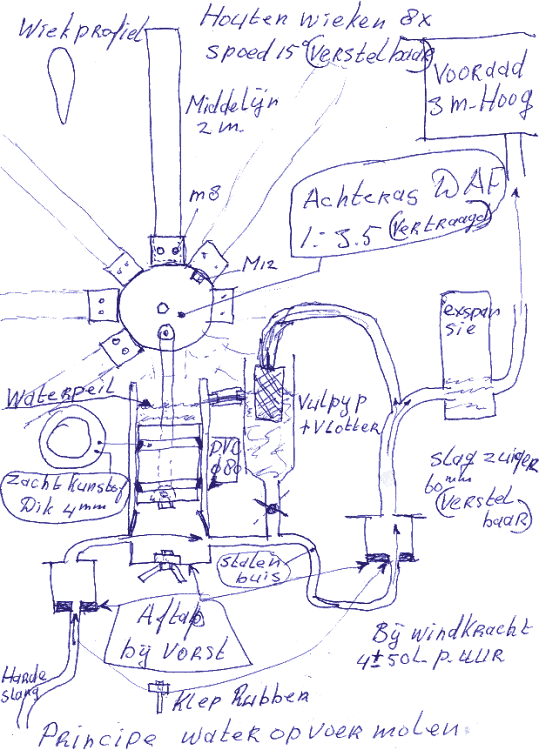 Wiekprofiel
Houten wieken 8x
spoed 15° (Verstelbaar)
Vooraad
3 m-Hoog
Middelijn
2 m.
Achteras DAF
1:3.5 (Vertraagd)
m8
M12
exspan
sie
Waterpeil
Vulpyp
+ Vlotter
PVC
ø80
Zacht Kunstof
Dik 4mm
slag zuiger
60mm
(Verstel
baar)
stalen
buis
Aftap
bij Vorst
Bij windkracht
4 ± 50L p. uur
Harde
slang
Klep Rubber
Principe wateropvoermolen.